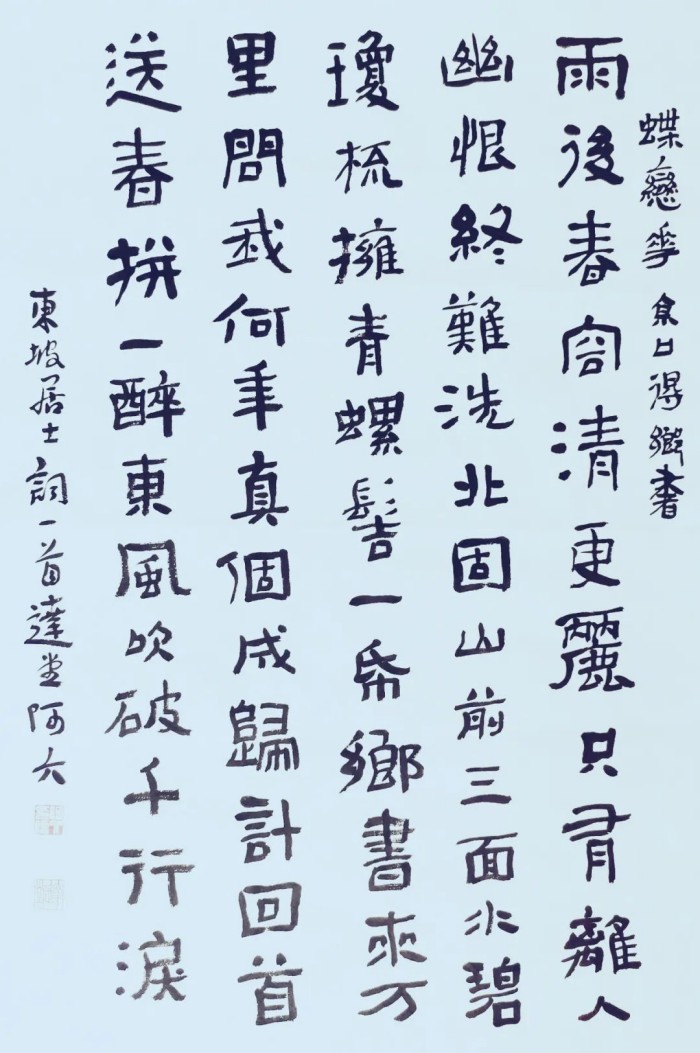 蝶戀花 京口得鄉書
雨後春容清更麗只有離人
幽恨終難洗北固山前三面水碧
瓊梳擁青螺髻一帋鄉書來万
里問我何年真個成歸計回首
送春拼一醉東風吹破千行淚
東坡居士詞一首達堂阿六